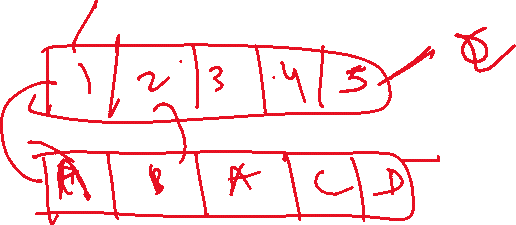 1 2 3 4 5
A B A C D